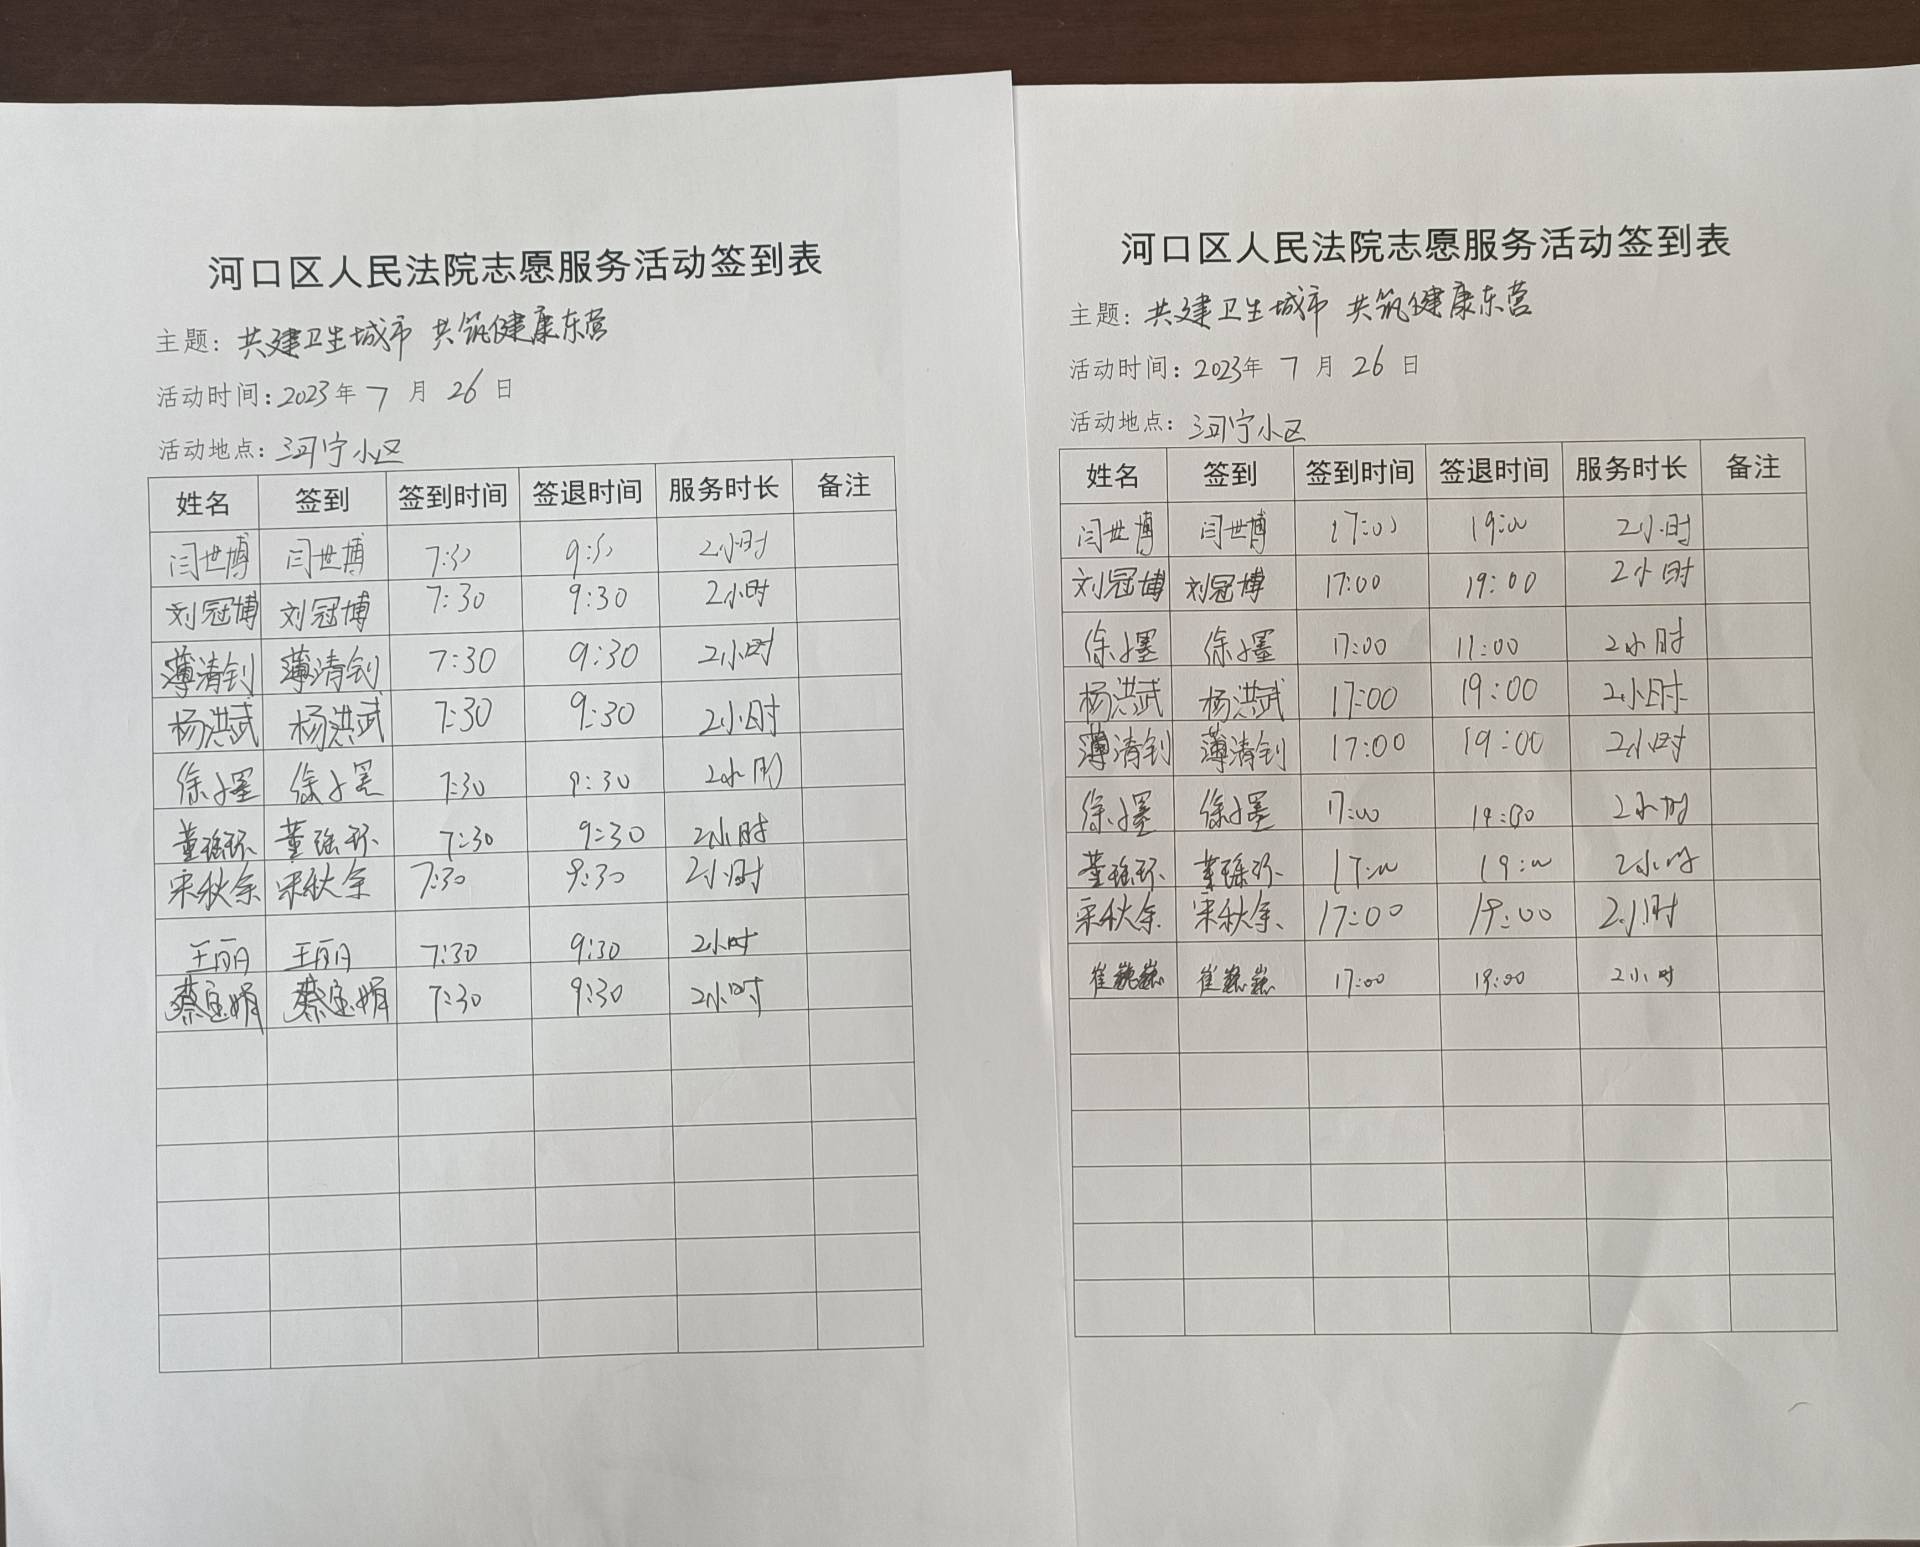 河口区人民法院志愿服务活动签到表
主题: 共建卫生城市 共筑健康东营
活动时间: 2023年 7 月 26 日
活动地点: 河宁小区
姓名 签到 签到时间 签退时间 服务时长 备注
闫世博 闫世博 7:30 9:30 2小时
刘冠博 刘冠博 7:30 9:30 2小时
薄清钊 薄清钊 7:30 9:30 2小时
杨洪武 杨洪武 7:30 9:30 2小时
徐小墨 徐小墨 7:30 9:30 2小时
董瑶环 董瑶环 7:30 9:30 2小时
宋秋余 宋秋余 7:30 9:30 2小时
王丽丹 王丽丹 7:30 9:30 2小时
蔡宝娟 蔡宝娟 7:30 9:30 2小时
河口区人民法院志愿服务活动签到表
主题: 共建卫生城市 共筑健康东营
活动时间: 2023年 7 月 26 日
活动地点: 河宁小区
姓名 签到 签到时间 签退时间 服务时长 备注
闫世博 闫世博 17:00 19:00 2小时
刘冠博 刘冠博 17:00 19:00 2小时
徐小墨 徐小墨 17:00 19:00 2小时
杨洪武 杨洪武 17:00 19:00 2小时
薄清钊 薄清钊 17:00 19:00 2小时
徐小墨 徐小墨 17:00 2小时
董瑶环 董瑶环 17:00 19:00 2小时
宋秋余 宋秋余 17:00 19:00 2小时
崔巍巍 崔巍巍 17:00 19:00 2小时